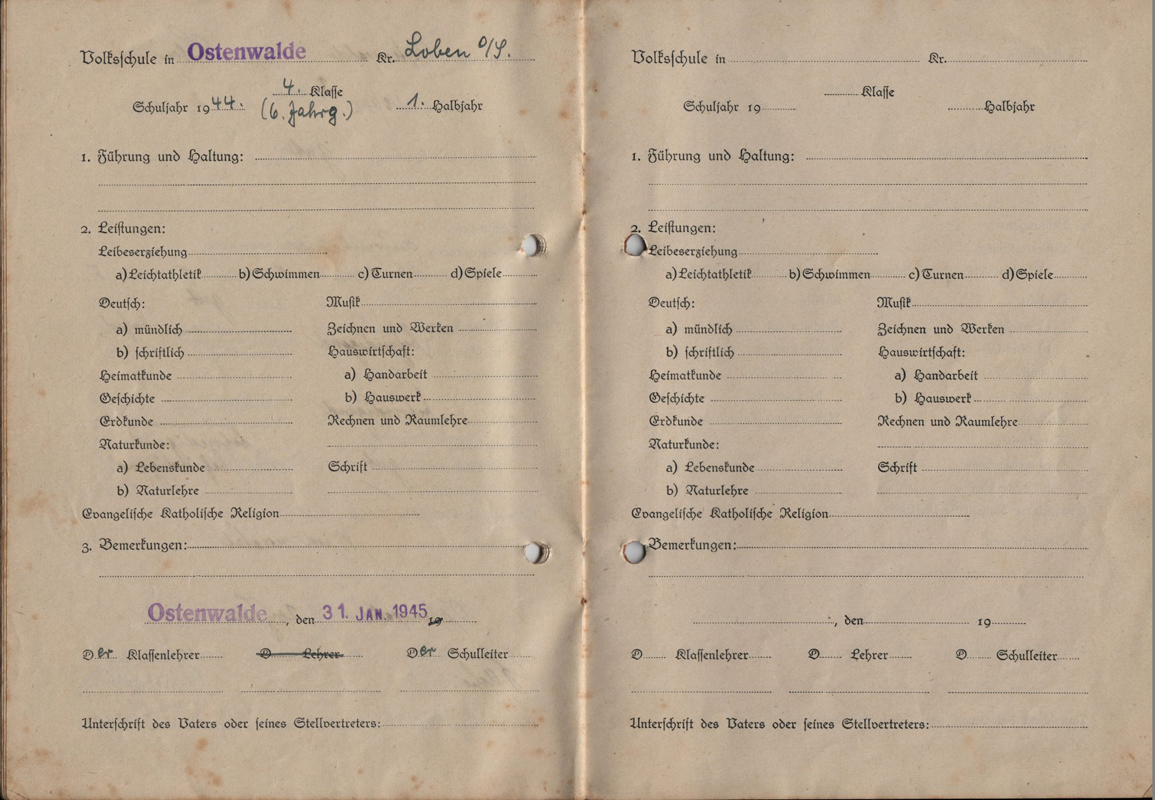 Volksschule in Ostenwalde Kr. Loben O/S.
4. Klasse
Schuljahr 1944. (6. Jahrg.) 1. Halbjahr
1. Führung und Haltung:
2. Leistungen:
Leibeserziehung
a) Leichtathletik b) Schwimmen c) Turnen d) Spiele
Deutsch: Musik
a) mündlich Zeichnen und Werken
b) schriftlich Hauswirtschaft:
Heimatkunde a) Handarbeit
Geschichte b) Hauswerk
Erdkunde Rechnen und Raumlehre
Naturkunde:
a) Lebenskunde Schrift
b) Naturlehre
Evangelische Katholische Religion
3. Bemerkungen:
Ostenwalde, den 31. JAN. 1945 19
Der Klassenlehrer D Lehrer Der Schulleiter
Unterschrift des Vaters oder seines Stellvertreters:
Volksschule in Kr.
Klasse
Schuljahr 19 Halbjahr
1. Führung und Haltung:
2. Leistungen:
Leibeserziehung
a) Leichtathletik b) Schwimmen c) Turnen d) Spiele
Deutsch: Musik
a) mündlich Zeichnen und Werken
b) schriftlich Hauswirtschaft:
Heimatkunde a) Handarbeit
Geschichte b) Hauswerk
Erdkunde Rechnen und Raumlehre
Naturkunde:
a) Lebenskunde Schrift
b) Naturlehre
Evangelische Katholische Religion
Bemerkungen:
, den 19
D Klassenlehrer D Lehrer D Schulleiter
Unterschrift des Vaters oder seines Stellvertreters: